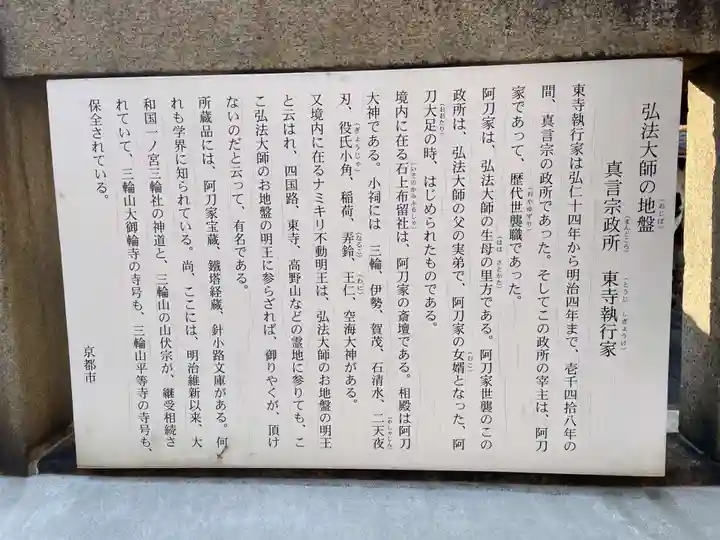 弘法大師の地盤（おじば）
真言宗政所（まんどころ）　東寺執行家（とうじ　しぎょうけ）
東寺執行家は弘仁十四年から明治四年まで、壱千四拾八年の
間、真言宗の政所であった。そしてこの政所の宰主は、阿刀
家であって、歴代世襲職（おやゆずり）であった。
阿刀家は、弘法大師の生母の里方（はは　さとかた）である。阿刀家世襲のこの
政所は、弘法大師の父の実弟で、阿刀家の女婿（むこ）となった、阿
刀大足（おおたり）の時、はじめられたものである。
境内に在る石上布留社（いそのかみふるしゃ）は、阿刀家の斎壇である。相殿は阿刀
大神である。小祠には　三輪、伊勢、賀茂、石清水、二天夜
刃（やしゃじん）、役氏小角（ぎょうじゃ）、稲荷、弄鈴（なるこ）、王仁（わじ）、空海大神がある。
又境内に在るナミキリ不動明王は、弘法大師のお地盤の明王
と云はれ、四国路、東寺、高野山などの霊地に参りても、こ
こ弘法大師のお地盤の明王に参らざれば、御りやくが、頂け
ないのだと云って、有名である。
所蔵品には、阿刀家宝蔵、鐵塔経蔵、針小路文庫がある。何
れも学界に知られている。尚、ここには、明治維新以来、大
和国一ノ宮三輪社の神道と、三輪山の山伏宗が、継受相続さ
れていて、三輪山大御輪寺の寺号も、三輪山平等寺の寺号も、
保全されている。
京都市